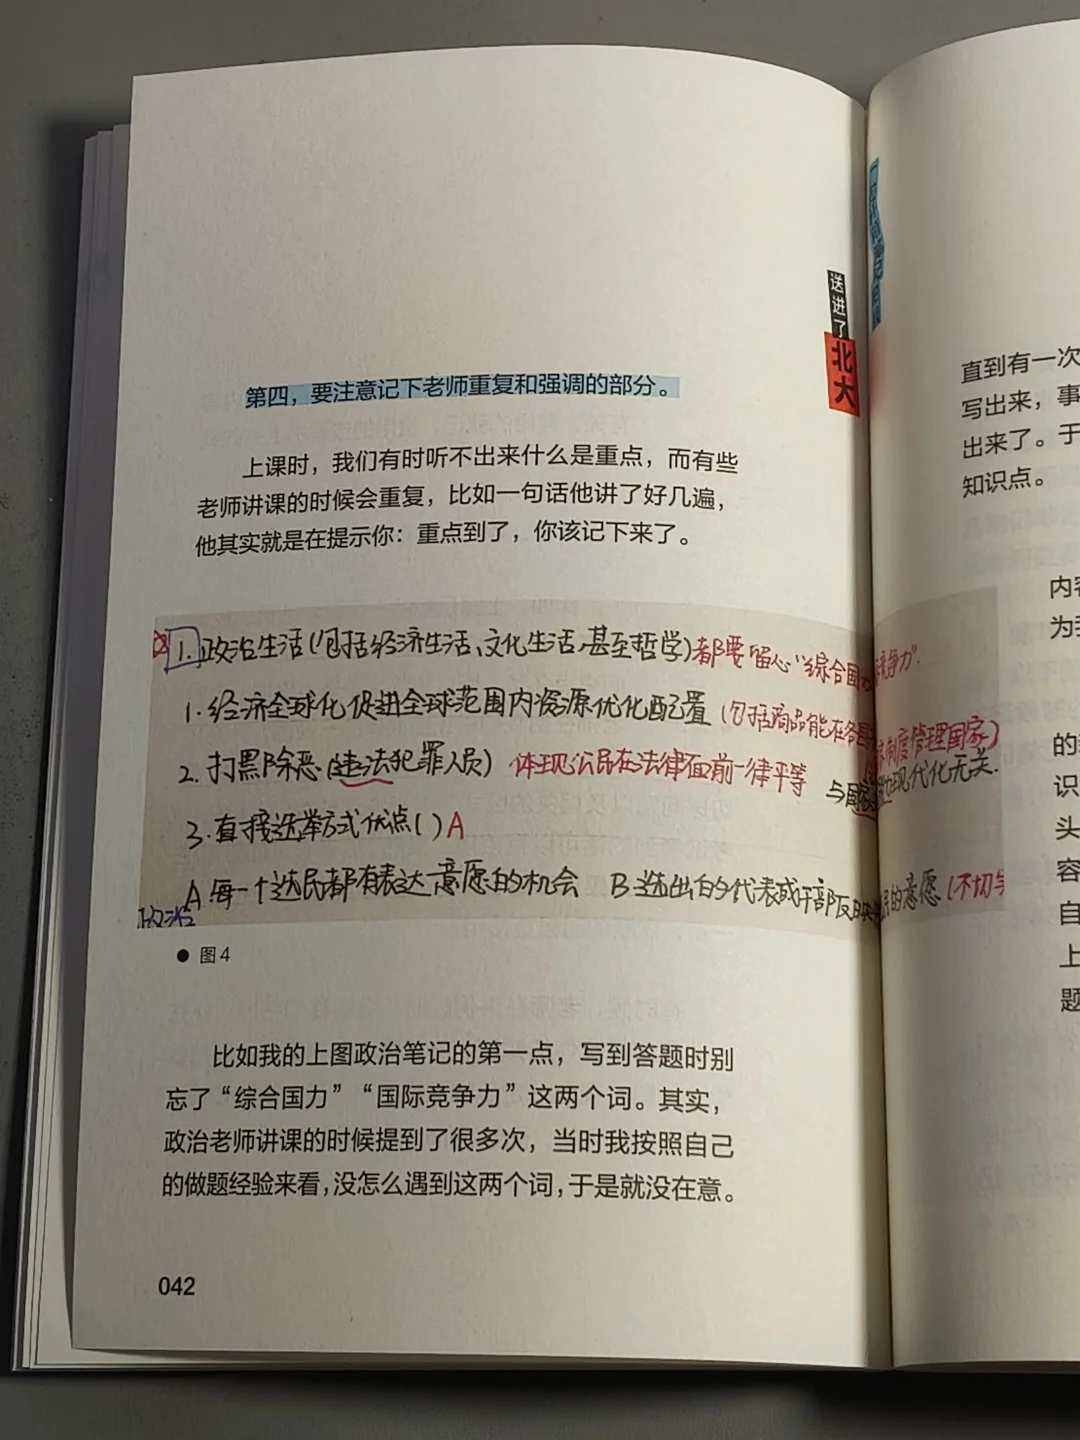 送进了
北大
第四，要注意记下老师重复和强调的部分。
上课时，我们有时听不出来什么是重点，而有些
老师讲课的时候会重复，比如一句话他讲了好几遍，
他其实就是在提示你：重点到了，你该记下来了。
1.政治生活(包括经济生活、文化生活,甚至哲学)都要留心“综合国 争力”.
1.经济全球化促进全球范围内资源优化配置(包括商品能在各国
制度管理国家)
2.打黑除恶(违法犯罪人员) 体现公民在法律面前一律平等 与国家 现代化无关.
3.直接选举方式优点( )A
A.每一个选民都有表达意愿的机会 B.选出的代表或干部反映 的意愿(不切
政治
● 图4
比如我的上图政治笔记的第一点，写到答题时别
忘了“综合国力”“国际竞争力”这两个词。其实，
政治老师讲课的时候提到了很多次，当时我按照自己
的做题经验来看，没怎么遇到这两个词，于是就没在意。
042
直到有一次
写出来，事
出来了。于
知识点。
内容
为
的
识
头
容
自
上
题